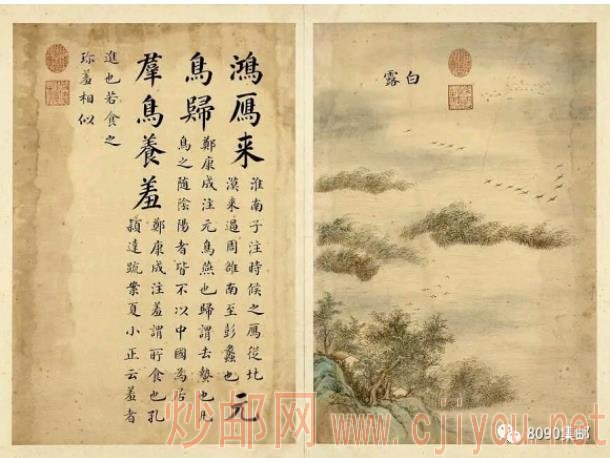 白露
鴻鴈来
淮南子注時候之鴈從北
漠来過周雒南至彭蠡也
元
鳥歸
鄭康成注元鳥燕也歸謂去蟄也凡
鳥之随陰陽者皆不以中國為居
羣鳥養羞
鄭康成注羞謂所食也孔
穎達疏案夏小正云羞者
進也若食之
珎羞相似
炒邮网 www.cjiyou.net
8090集邮